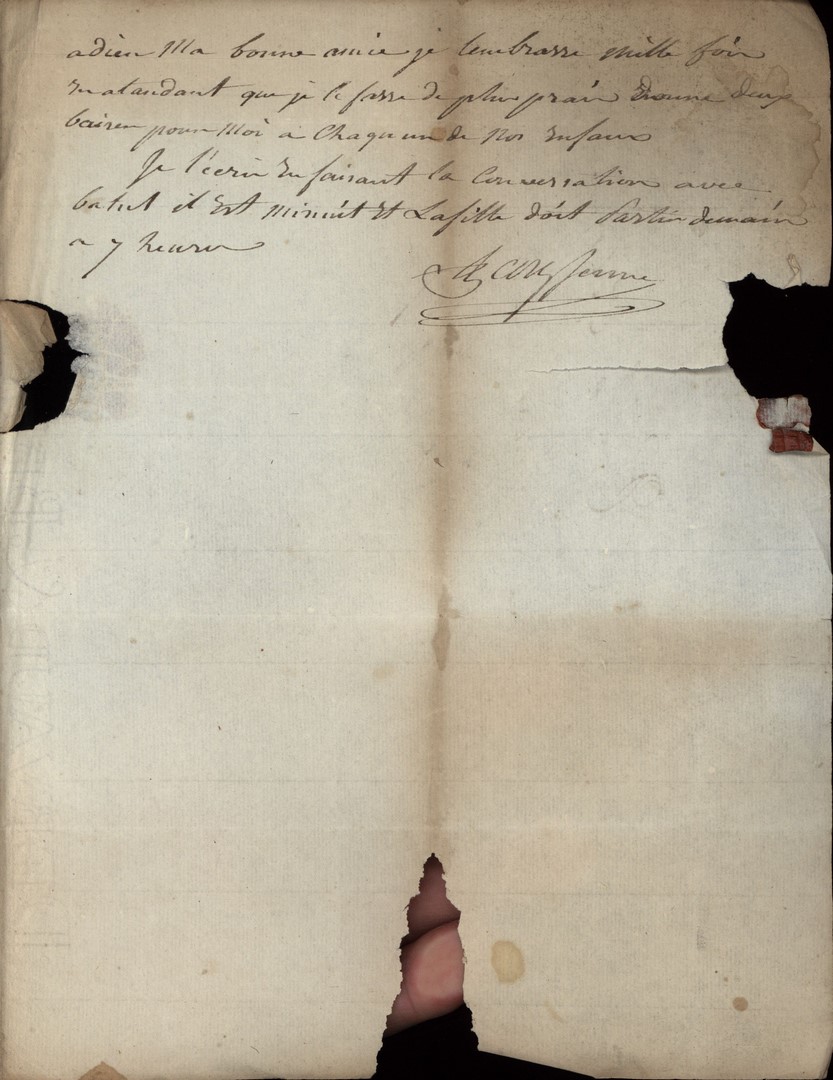 adieu Ma bonne amie je tembrasse mille fois
En atandant que je le fasse de plus prais Donne deux
baisers pour Moi a Chaqu'un de Nos Enfans
Je t'écris En faisant la Conversation avec
batut il Est minuit Et Lafille doit Partir demain
a 7 heures